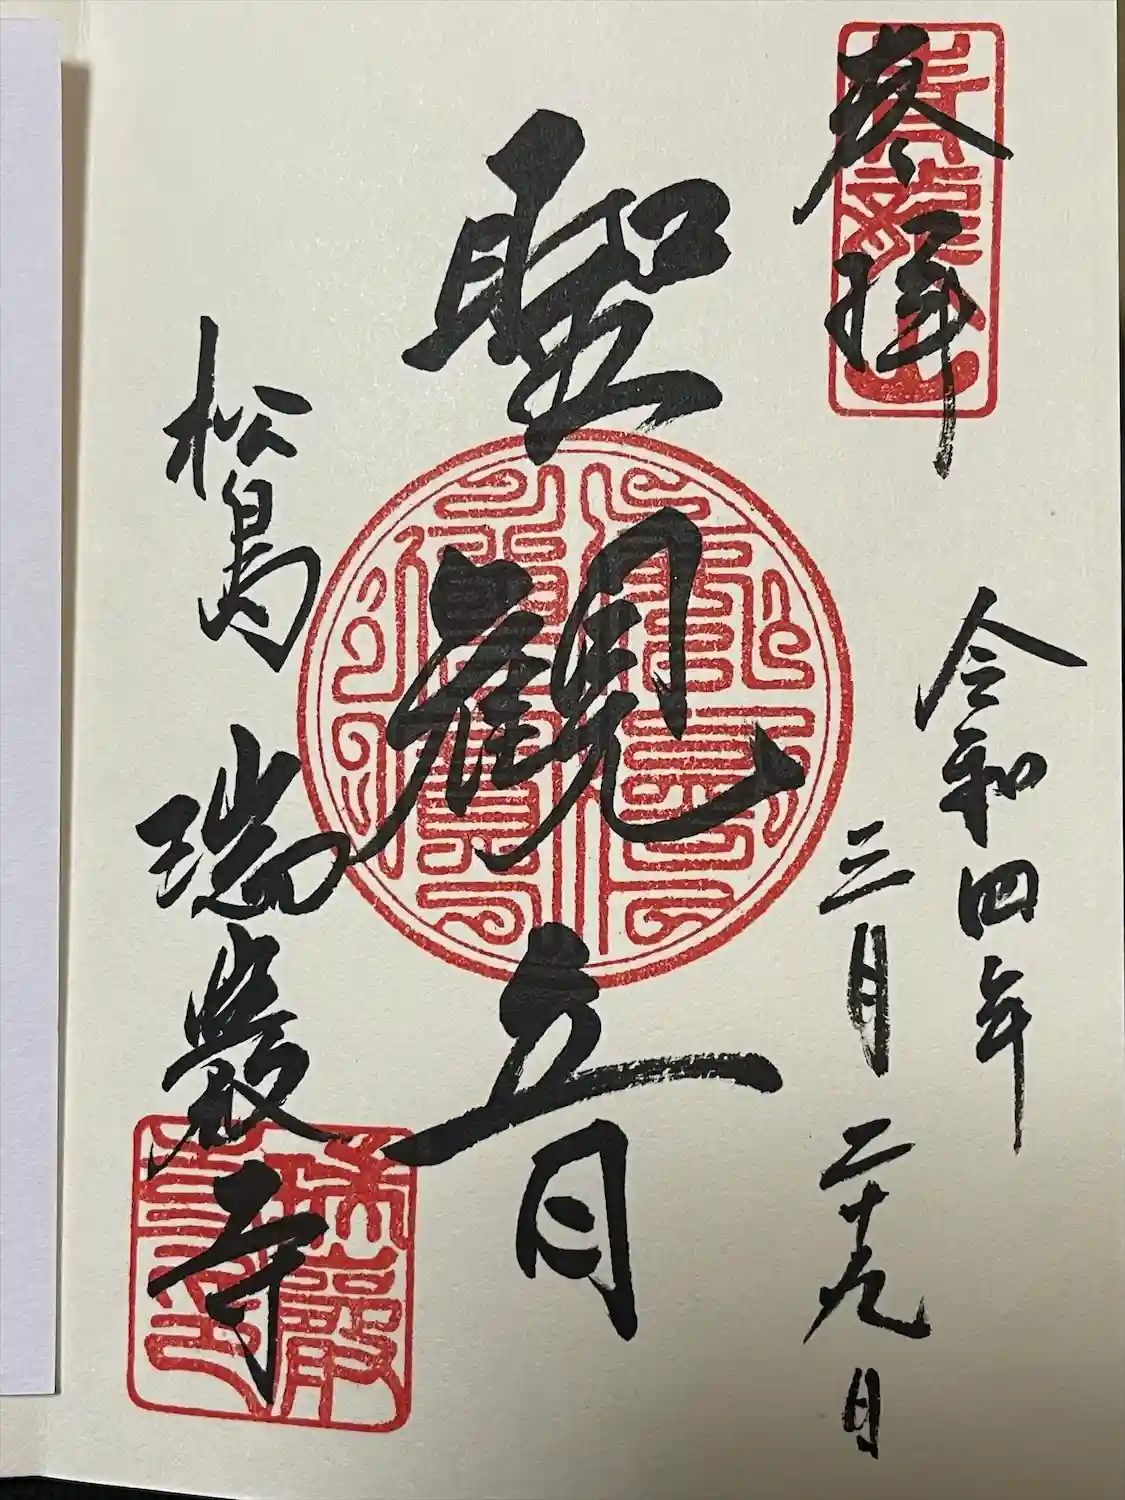 参拝
令和四年
三月二十九日
聖観音
松島 瑞巌寺